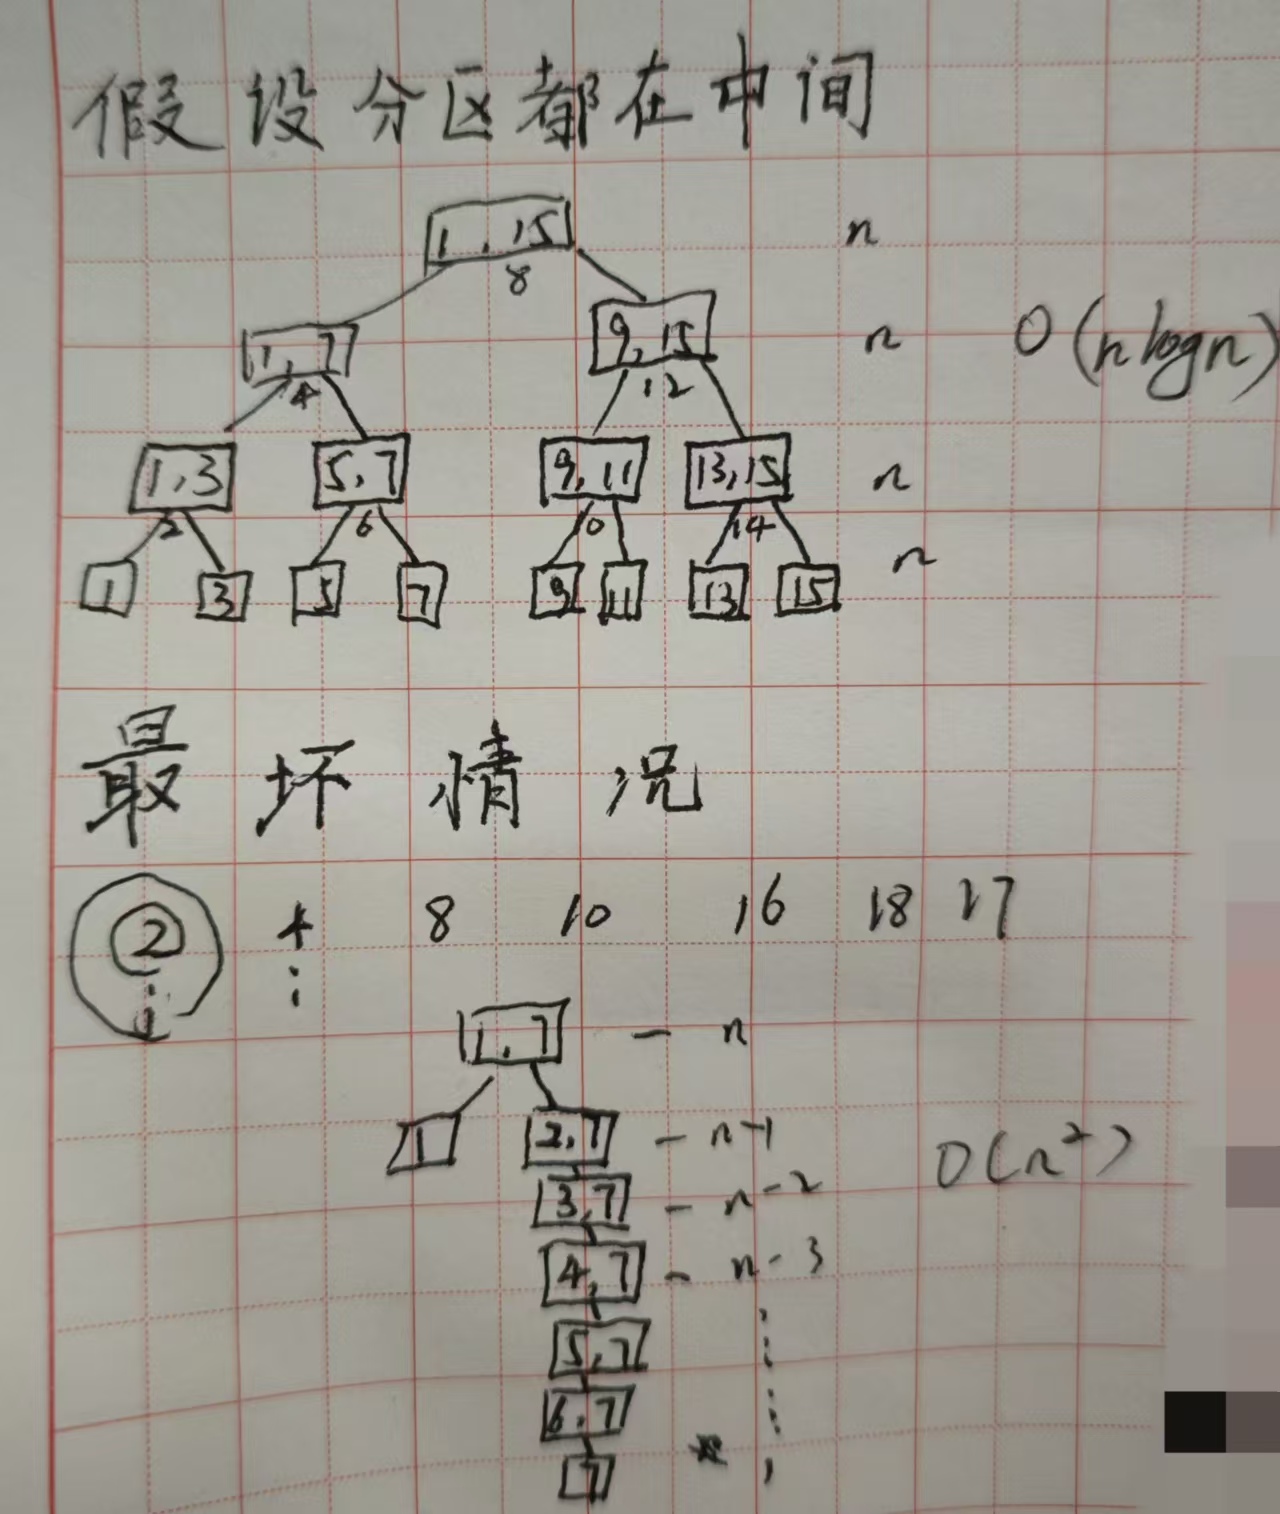 假设分区都在中间
1,15 n
8
1,7 9,15 n O(nlogn)
4 12
1,3 5,7 9,11 13,15 n
2 6 10 14
1 3 5 7 9 11 13 15 n
最坏情况
2 4 8 10 16 18 17
i i
1,7 - n
1 2,7 - n-1 O(n²)
3,7 - n-2
4,7 - n-3
5,7
6,7
7